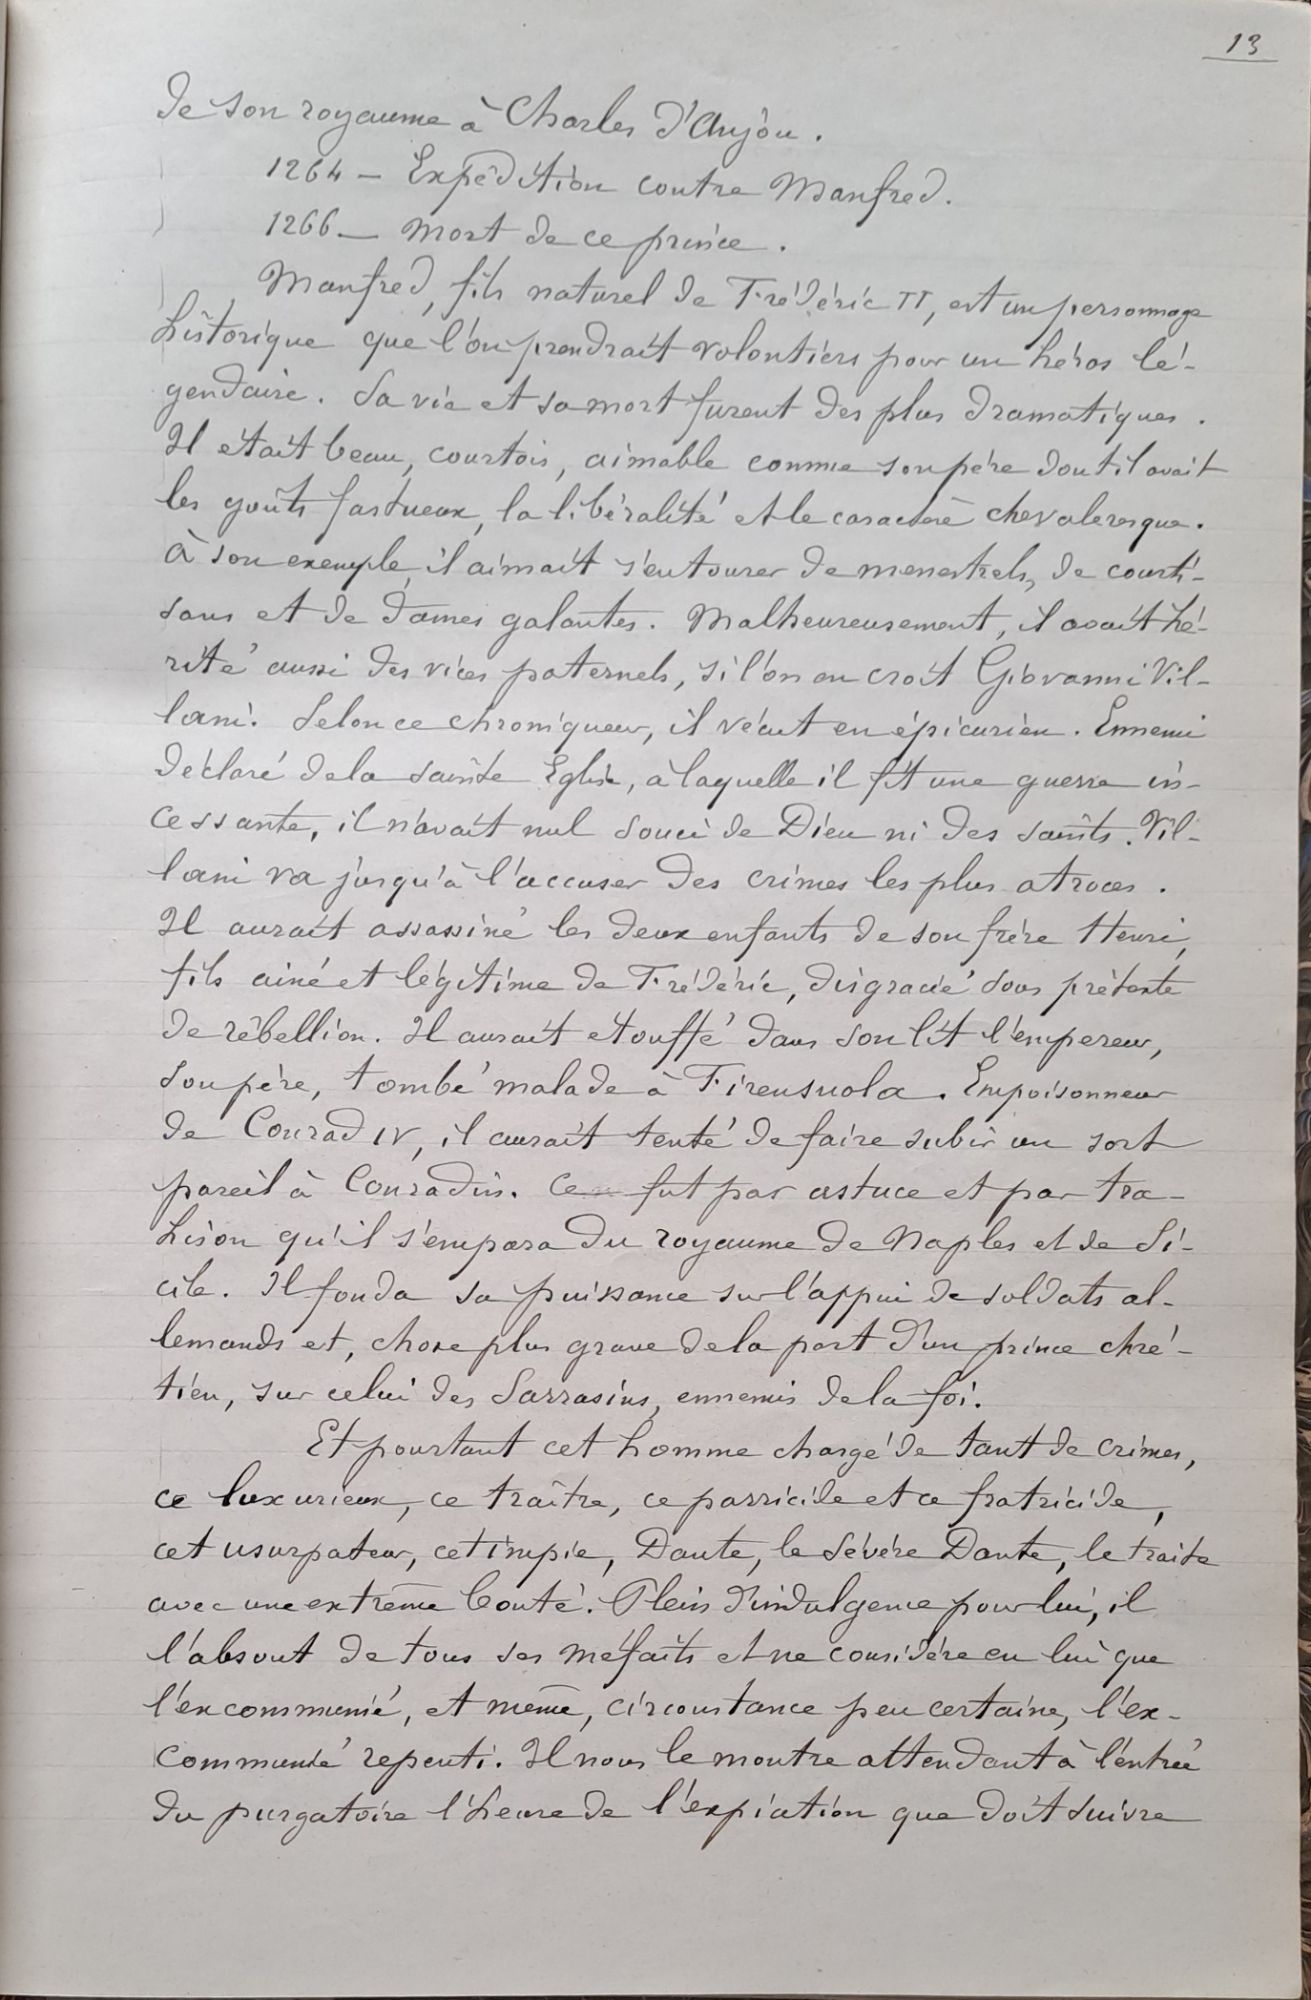 13
de son royaume à Charles d'Anjou.
1264 — Expédition contre Manfred.
1266 — Mort de ce prince.
Manfred, fils naturel de Frédéric II, est un personnage
historique que l'on prendrait volontiers pour un héros lé-
gendaire. Sa vie et sa mort furent des plus dramatiques.
Il était beau, courtois, aimable comme son père dont il avait
les goûts fastueux, la libéralité et le caractère chevaleresque.
À son exemple, il aimait s'entourer de menestrels, de courti-
sans et de dames galantes. Malheureusement, il avait hé-
rité aussi des vices paternels, si l'on en croit Giovanni Vil-
lani. Selon ce chroniqueur, il vécut en épicurien. Ennemi
déclaré de la sainte Eglise, à laquelle il fit une guerre in-
cessante, il n'avait nul souci de Dieu ni des saints. Vil-
lani va jusqu'à l'accuser des crimes les plus atroces.
Il aurait assassiné les deux enfants de son frère Henri,
fils ainé et légitime de Frédéric, disgracié sous prétexte
de rébellion. Il aurait étouffé dans son lit l'empereur,
son père, tombé malade à Firensuola. Empoisonneur
de Conrad IV, il aurait tenté de faire subir un sort
pareil à Conradin. Ce fut par astuce et par tra-
hison qu'il s'empara du royaume de Naples et de Si-
cile. Il fonda sa puissance sur l'appui de soldats al-
lemands et, chose plus grave de la part d'un prince chré-
tien, sur celui des Sarrasins, ennemis de la foi.
Et pourtant cet homme chargé de tant de crimes,
ce luxurieux, ce traître, ce parricide et ce fratricide,
cet usurpateur, cet impie, Dante, le sévère Dante, le traite
avec une extrême bonté. Plein d'indulgence pour lui, il
l'absout de tous ses méfaits et ne considère en lui que
l'excommunié, et même, circonstance peu certaine, l'ex-
communié repenti. Il nous le montre attendant à l'entrée
du purgatoire l'heure de l'expiation que doit suivre